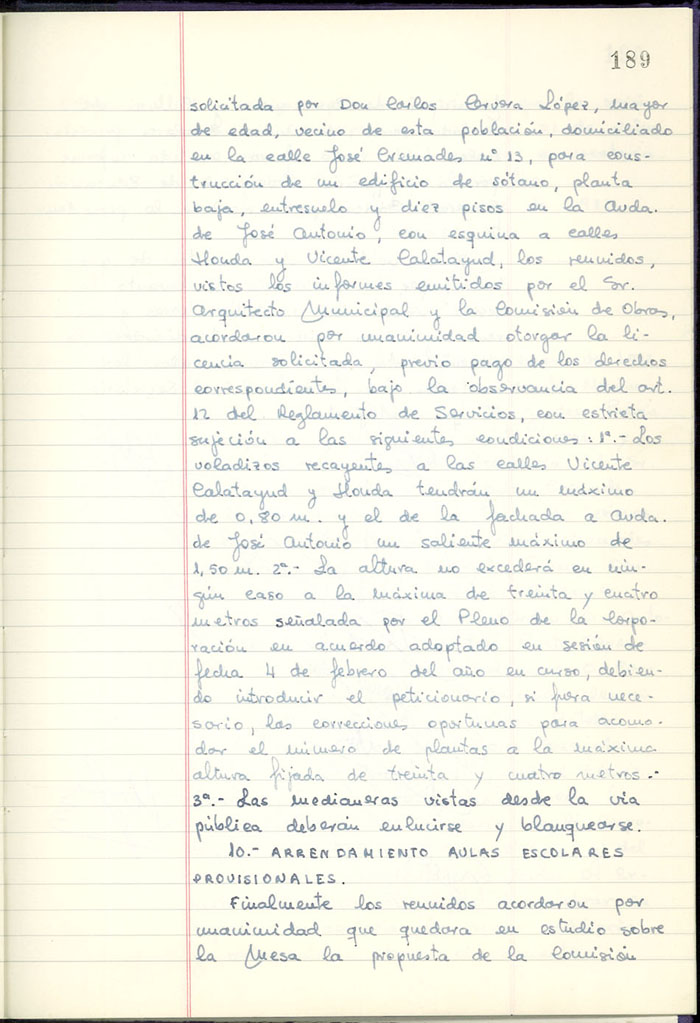 189
solicitada por Don Carlos Cervera López, mayor
de edad, vecino de esta población, domiciliado
en la calle José Cremades nº 13, para cons-
trucción de un edificio de sótano, planta
baja, entresuelo y diez pisos en la Avda.
de José Antonio, con esquina a calles
Honda y Vicente Calatayud, los reunidos,
vistos los informes emitidos por el Sr.
Arquitecto Municipal y la Comisión de Obras,
acordaron por unanimidad otorgar la li-
cencia solicitada, previo pago de los derechos
correspondientes, bajo la observancia del art.
12 del Reglamento de Servicios, con estricta
sujeción a las siguientes condiciones: 1ª.- Los
voladizos recayentes a las calles Vicente
Calatayud y Honda tendrán un máximo
de 0,80 m. y el de la fachada a Avda.
de José Antonio un saliente máximo de
1,50 m. 2ª.- La altura no excederá en nin-
gún caso a la máxima de treinta y cuatro
metros señalada por el Pleno de la Corpo-
ración en acuerdo adoptado en sesión de
fecha 4 de febrero del año en curso, debien-
do introducir el peticionario, si fuera nece-
sario, las correcciones oportunas para acomo-
dar el número de plantas a la máxima
altura fijada de treinta y cuatro metros.-
3ª.- Las medianeras vistas desde la vía
pública deberán enlucirse y blanquearse.
10.- ARRENDAMIENTO AULAS ESCOLARES
PROVISIONALES.
Finalmente los reunidos acordaron por
unanimidad que quedara en estudio sobre
la Mesa la propuesta de la Comisión